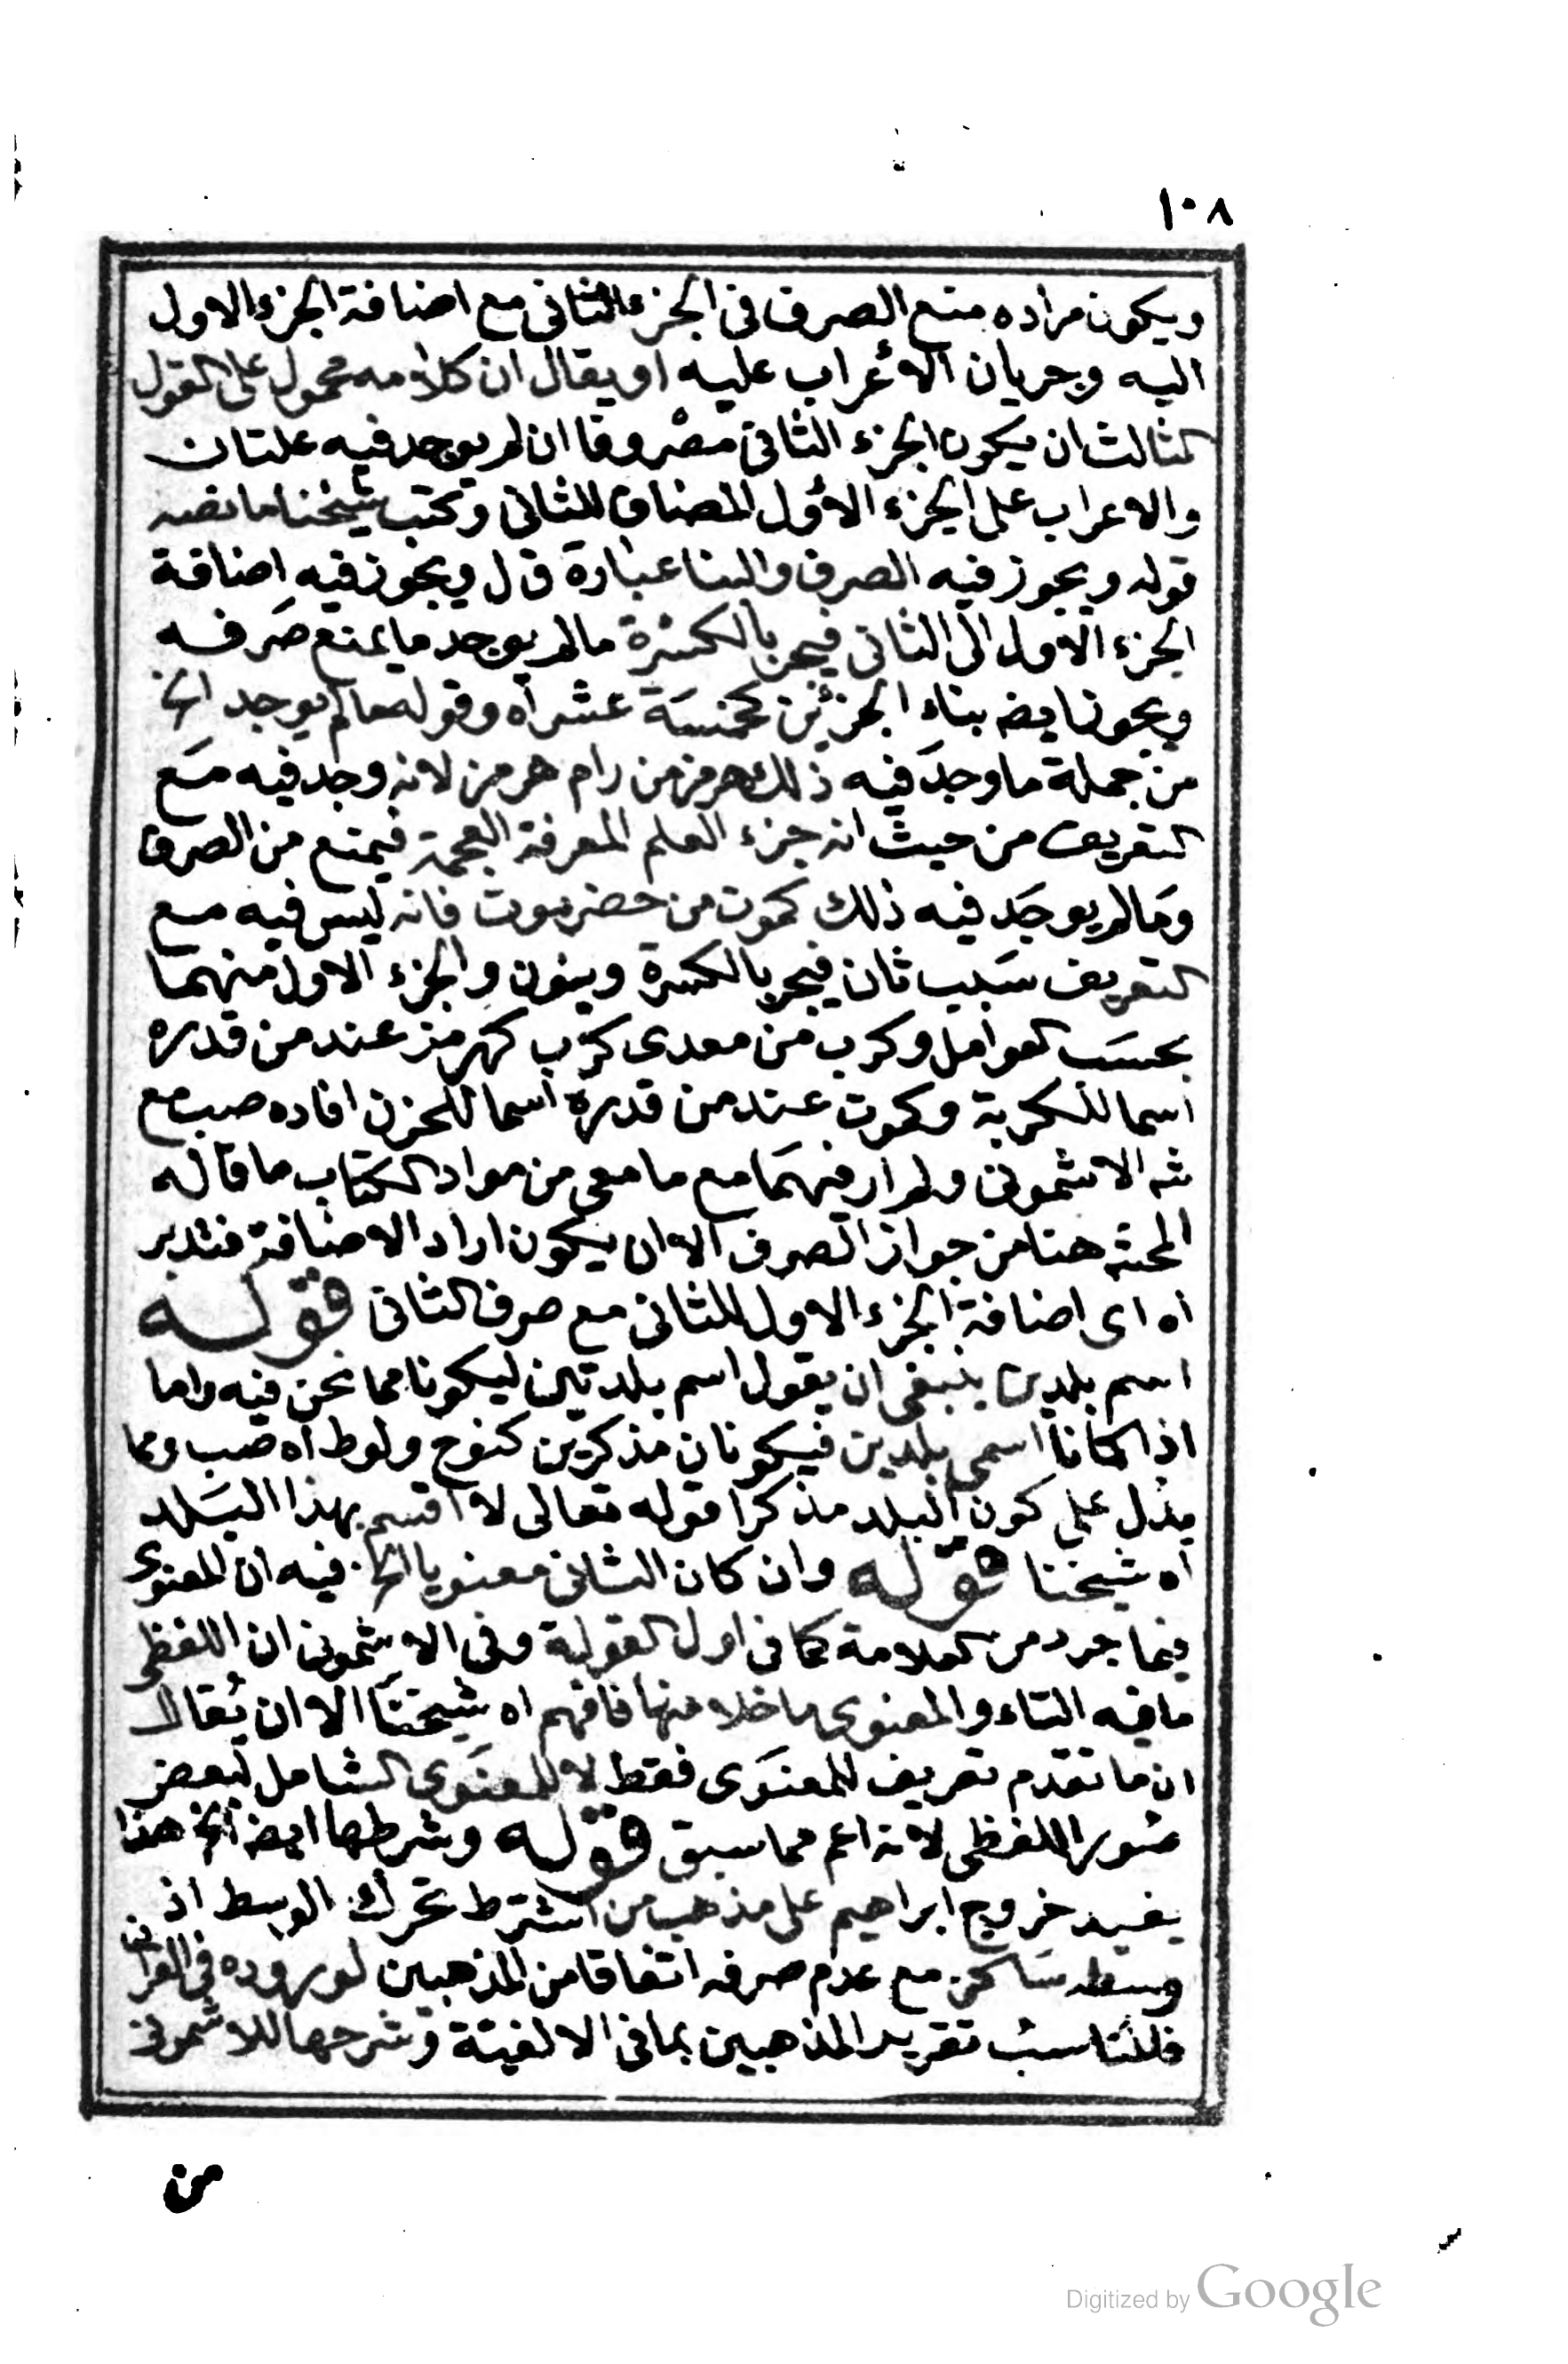 ١٠٨
ويكون مراده منع الصرف فى الجزء الثانى مع اضافة الجزء الاول
اليه وجريان الأعراب عليه او يقال ان كلامه محمول على القول
الثالث ان يكون الجزء الثانى مصروفا ان لم يوجد فيه علتان
والاعراب على الجزء الأول المضاف للثانى وكتب شيخنا ما نصه
قوله ويجوز فيه الصرف والبنا عبارة ق ل ويجوز فيه اضافة
الجزء الاول الى الثانى فيجر بالكسرة مالم يوجد ما يمنع صرفه
ويجوز ايضه بناء الجزئين كخمسة عشر اه وقوله مالم يوجد الخ
من جملة ما وجد فيه ذلك هرمز من رام هرمز لانه وجد فيه مع
التعريف من حيث انه جزء العلم المعرفة العجمة فيمتنع من الصرف
ومالم يوجد فيه ذلك كموت من حضرموت فانه ليس فيه مع
التعريف سبب ثان فيجر بالكسرة وينون والجزء الاول منهما
بحسب العوامل وكرب من معدى كرب كهرمز عند من قدره
اسما للكربة وكموت عند من قدره اسما للحزن افاده صب مع
شه الاشمونى ولم ار فيهما مع ما معى من مواد الكتاب ما قاله
المحشه هنا من جواز الصرف الا ان يكون اراد الاضافة فتدبر
اه اى اضافة الجزء الاول للثانى مع صرف الثانى قوله
اسم بلدين ينبغى ان يقول اسم بلدتين ليكونا مما نحن فيه واما
اذا كانا اسمى بلدين فيكونان مذكرين كنوح ولوط اه صب ومما
يدل على كون البلد مذكرا قوله تعالى لا اقسم بهذا البلد
اه شيخنا قوله وان كان الثانى معنويا الخ فيه ان المعنوى
فيما جرد من العلامة كما فى اول القولية وفى الاشمونى ان اللفظى
ما فيه التاء والمعنوى ما خلا منها فافهم اه شيخنا الا ان يقال
ان ما تقدم تعريف للمعنوى فقط لا للمعنوى الشامل لبعض
صور اللفظى لانه اعم مما سبق قوله وشرطها ايضه الخ هذا
يفيد خروج ابراهيم على مذهب من اشترط تحرك الوسط اذ
وسطه ساكن مع عدم صرفه اتفاقا من المذهبين لوروده فى القرآن
فالمناسب تقرير المذهبين بما فى الالفية وشرحها للاشمونى
من
Digitized by Google